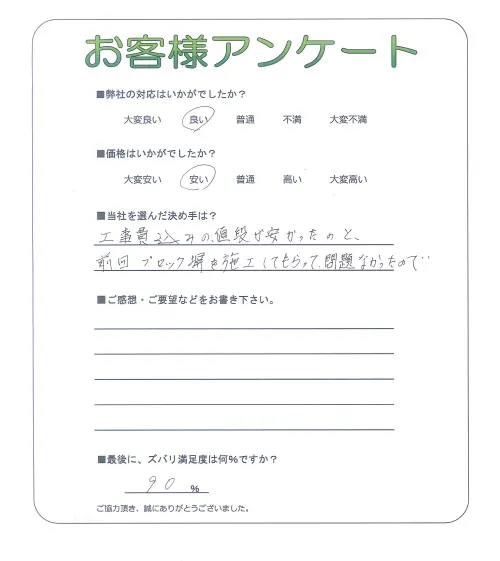 お客様アンケート
■弊社の対応はいかがでしたか？
大変良い 良い 普通 不満 大変不満
■価格はいかがでしたか？
大変安い 安い 普通 高い 大変高い
■当社を選んだ決め手は？
工事費込みの、値段が安かったのと、
前回ブロック塀を施工してもらって、問題なかったので‥
■ご感想・ご要望などをお書き下さい。
■最後に、ズバリ満足度は何%ですか？
90 %
ご協力頂き、誠にありがとうございました。